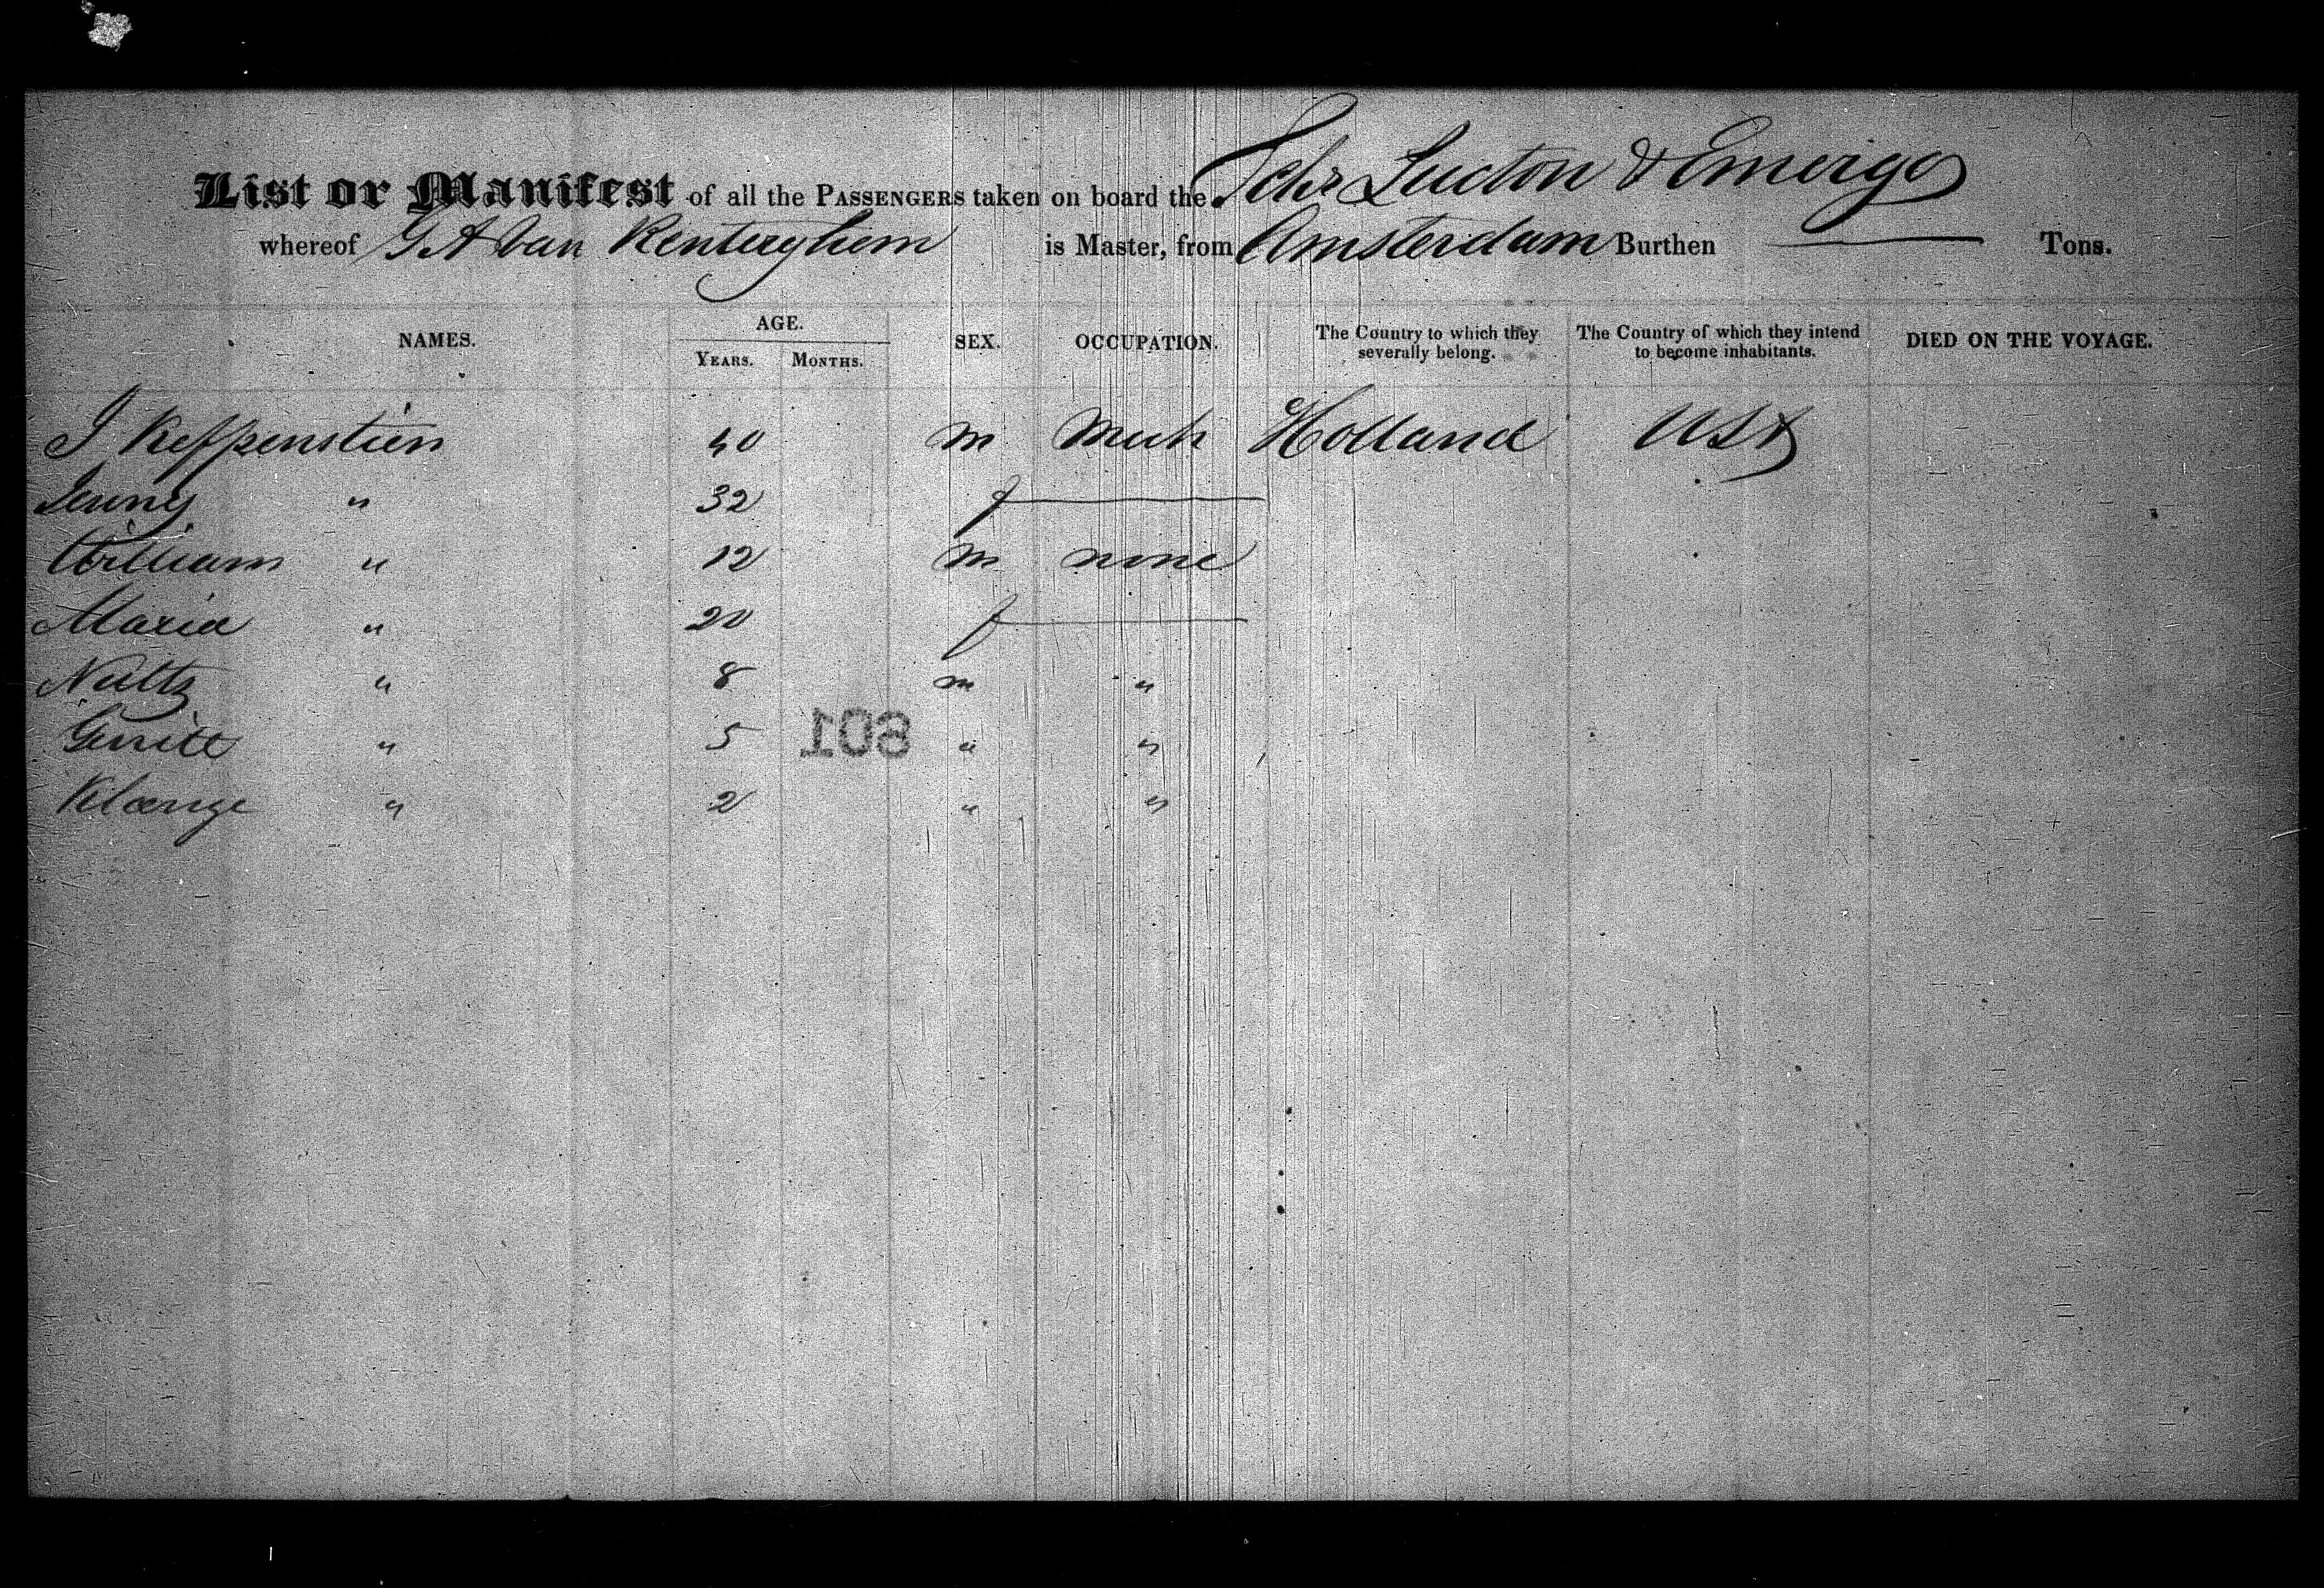 List or Manifest of all the PASSENGERS taken on board the Schr Lucton & Emergo
whereof G A Van Renterghem is Master, from Amsterdam Burthen — Tons.
NAMES. AGE. SEX. OCCUPATION. The Country to which they severally belong. The Country of which they intend to become inhabitants. DIED ON THE VOYAGE.
YEARS. MONTHS.
J Keppenstien 40 m Mech Holland USA
Jenny " 32 f
William " 12 m none
Maria " 20 f
" 8 m "
Gerritt " 5 " "
Klaenge " 2 " "
801